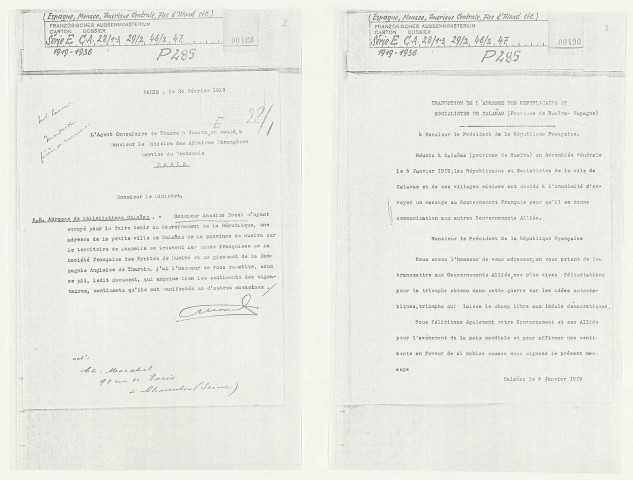 (Espagne, Monaco, Amérique Centrale, Iles d'Aland etc)
FRANZÖSISCHES AUSSENMINISTERIUM
CARTON DOSSIER
Série E C.A. 28/1-3 29/2, 46/2, 47
00489
1919-1936
P 285
PARIS, le 24 Février 1919
22/1
L'Agent Consulaire de France à Huelva, en congé, à
Monsieur le Ministre des Affaires Etrangères
Service du Protocole
PARIS
Monsieur le Ministre,
A.S. Adresse de félicitations Calañas. - Monsieur
m'ayant
envoyé pour le faire tenir au Gouvernement de la République, une
adresse de la petite ville de Calañas de la province de Huelva sur
le territoire de laquelle se trouvent les mines Françaises de la
Société Française des Pyrites de Huelva et un gisement de la Com-
pagnie Anglaise de Tharsis, j'ai l'honneur de vous remettre, sous
ce pli, ledit document, qui exprime bien les sentiments des signa-
taires, sentiments qu'ils ont manifestés en d'autres occasions
Ch. Marchal
90 rue de Paris
à Charenton (Seine)
(Espagne, Monaco, Amérique Centrale, Iles d'Aland etc)
FRANZÖSISCHES AUSSENMINISTERIUM
CARTON DOSSIER
Série E C.A. 28/1-3 29/2, 46/2, 47
00490
1919-1936
P 285
TRADUCTION DE L'ADRESSE DES REPUBLICAINS ET
SOCIALISTES DE CALAÑAS (Province de Huelva- Espagne)
à Monsieur le Président de la République Française.
Réunis à Calañas (province de Huelva) en Assemblée Générale
le 5 Janvier 1919, les Républicains et Socialistes de la ville de
Calañas et de ses villages miniers ont décidé à l'unanimité d'en-
voyer un message au Gouvernement Français pour qu'il en donne
communication aux autres Gouvernements Alliés.
Monsieur le Président de la République Française
Nous avons l'honneur de vous adresser, en vous priant de les
transmettre aux Gouvernements Alliés, nos plus vives félicitations
pour le triomphe obtenu dans cette guerre sur les idées autocra-
tiques, triomphe qui laisse le champ libre aux idéals démocratiques.
Nous félicitons également votre Gouvernement et ses Alliés
pour l'avènement de la paix mondiale et pour affirmer nos senti-
ments en faveur de si nobles causes nous signons le présent mes-
sage
Calañas le 5 Janvier 1919